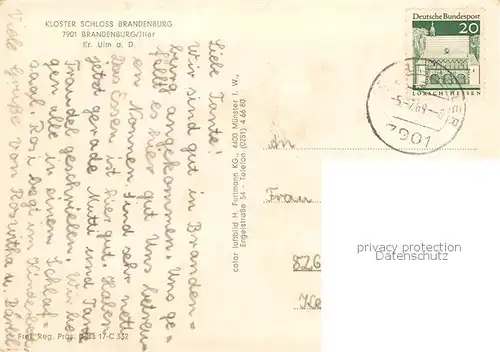 KLOSTER SCHLOSS BRANDENBURG
7901 BRANDENBURG/Iller
Kr. Ulm a. D.
Liebe Tante!
Wir sind gut in Branden-
burg angekommen. Uns ge-
fällt es hier gut. Uns betreu-
en Nonnen sind sehr nett.
Das Essen ist hier gut. Haben
jetzt gerade Mutti und Tante
Traudel geschrieben. Wir lie-
gen alle in einem Schlaf-
saal. Rosi liegt im Kinderbett
Viele Grüße von Roswitha u. Bärbel
Frei. Reg. Präs. 17-C 332
color luftbild H. Furtmann KG., 4400 Münster i. W.,
Engelstraße 54 - Telefon (0251) 4 66 80
Deutsche Bundespost
20
LORSCH/HESSEN
7901
An
Frau
826
privacy protection
RESTORED
privacy protection